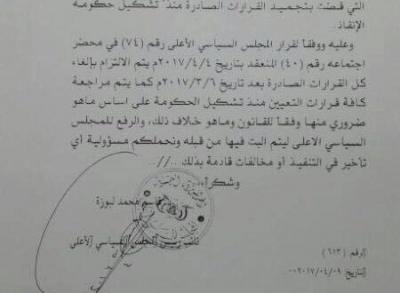 التي قضت بتجميد القرارات الصادرة منذ تشكيل حكومة
الإنقاذ.
وعليه ووفقاً لقرار المجلس السياسي الأعلى رقم (٧٤) في محضر
اجتماعه رقم (٤٠) المنعقد بتاريخ ٢٠١٧/٤/٤م يتم الالتزام بإلغاء
كل القرارات الصادرة بعد تاريخ ٢٠١٧/٣/٦م كما يتم مراجعة
كافة قرارات التعيين منذ تشكيل الحكومة على اساس ماهو
ضروري منها وفقاً للقانون وماهو خلاف ذلك، والرفع للمجلس
السياسي الاعلى ليتم البت فيها من قبله ونحملكم مسؤولية أي
تأخير في التنفيذ أو مخالفات قادمة بذلك ..//..
وشكراً،،
قاسم محمد لبوزة
نائب رئيس المجلس السياسي الأعلى
الرقم ( ٦١٣ )
التاريخ ٢٠١٧/٠٤/٠٩